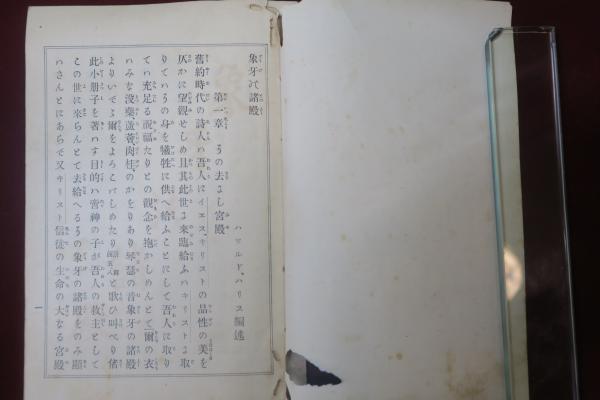 象牙の諸殿
ハワルド、ハリス編述
第一章　その去よし宮殿
舊約時代の詩人ハ吾人にイエス、キリストの品性の美を
仄かに望觀せしめ且其此世に來臨給ふハキリストに取
りてハその身を犠牲に供へ給ふことにして吾人に取り
てハ充足る祝福たりとの觀念を抱かしめんとて爾の衣
ハみな沒藥蘆薈肉桂のかをりあり琴瑟の音象牙の諸殿
よりいでよ爾をよろこバしめたりと歌ひ叫べり偖
此小册子を著ハす目的ハ啻神の子が吾人の救主として
この世に來らんとて去給へるその象牙の諸殿をのみ顯
ハさんとにあらで又キリスト信徒の生命の大なる宮殿